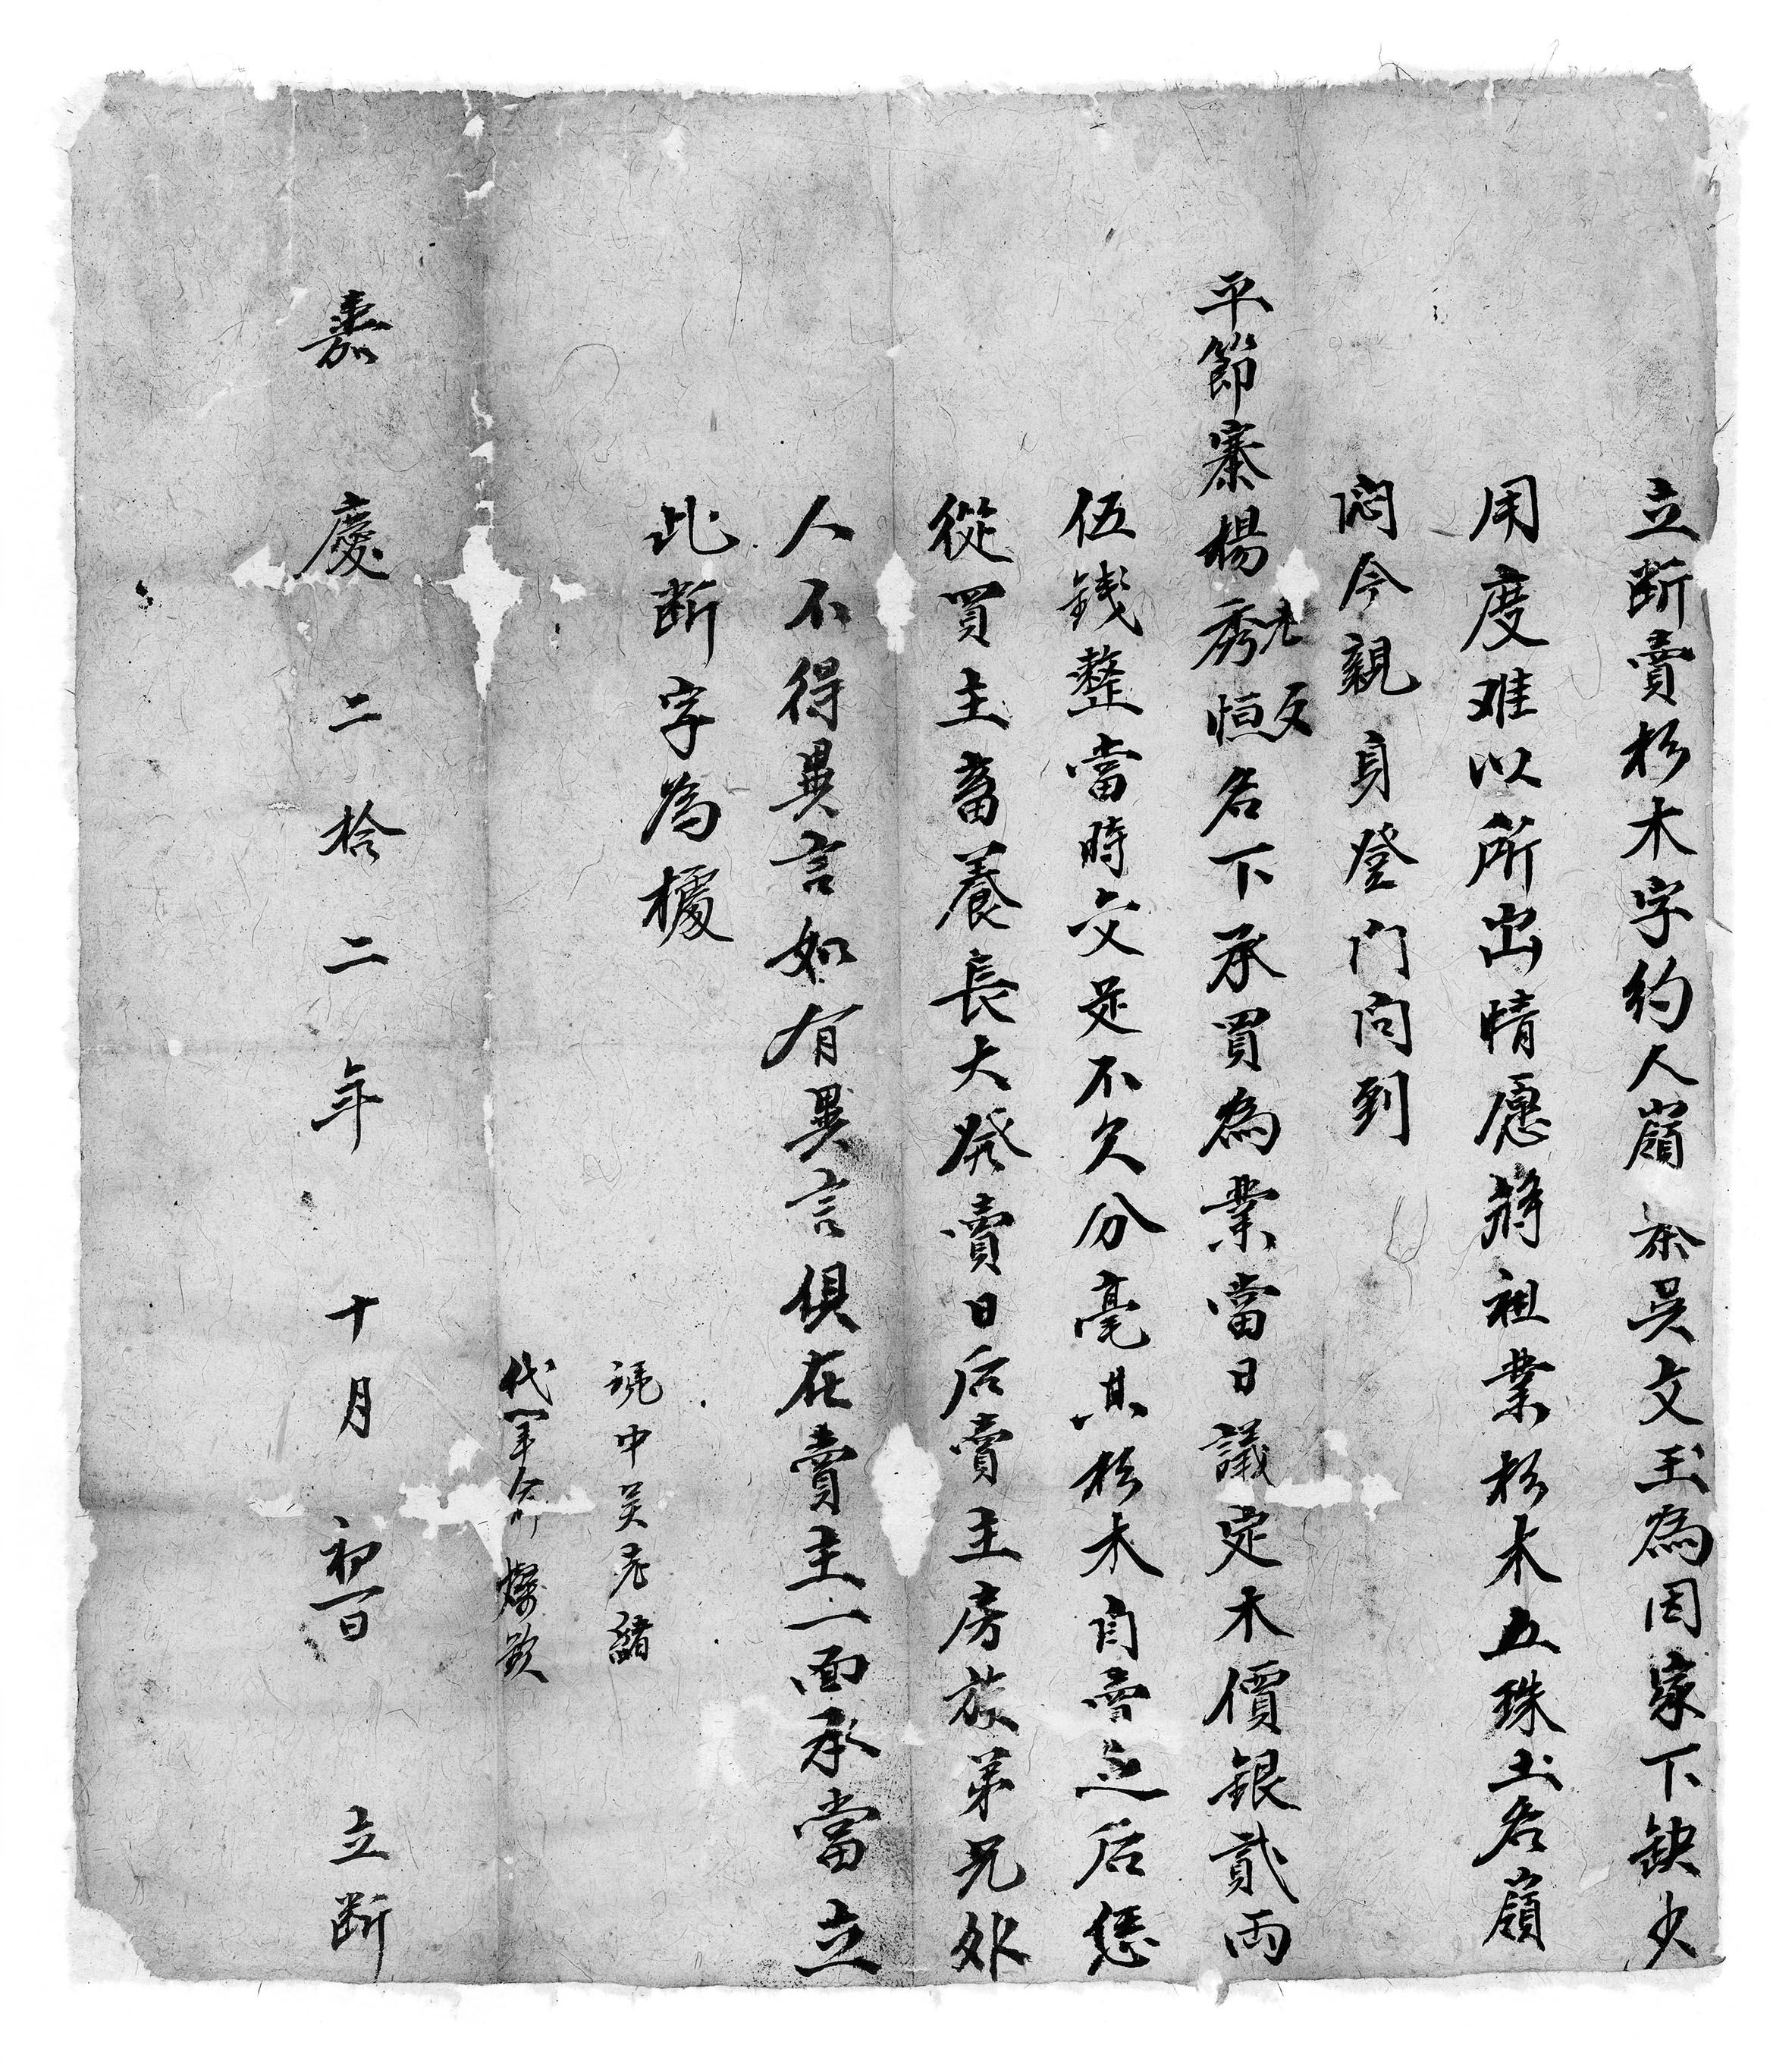 立断賣杉木字約人嶺 奈吴文玉為因家下缺少
用度难以所出情愿將祖業杉木五珠土名嶺
悶今親身登门问到
平節寨楊秀老恒反名下承買為業當日議定木價銀貳両
伍錢整當時交足不欠分毫其杉木自賣之后恁
從買主畜養長大発賣日后賣主房族弟兄外
人不得異言如有異言俱在賣主一面承當立
此断字為據
憑中吴老豬
代筆 燦歆
嘉慶二拾二年十月初一日 立断